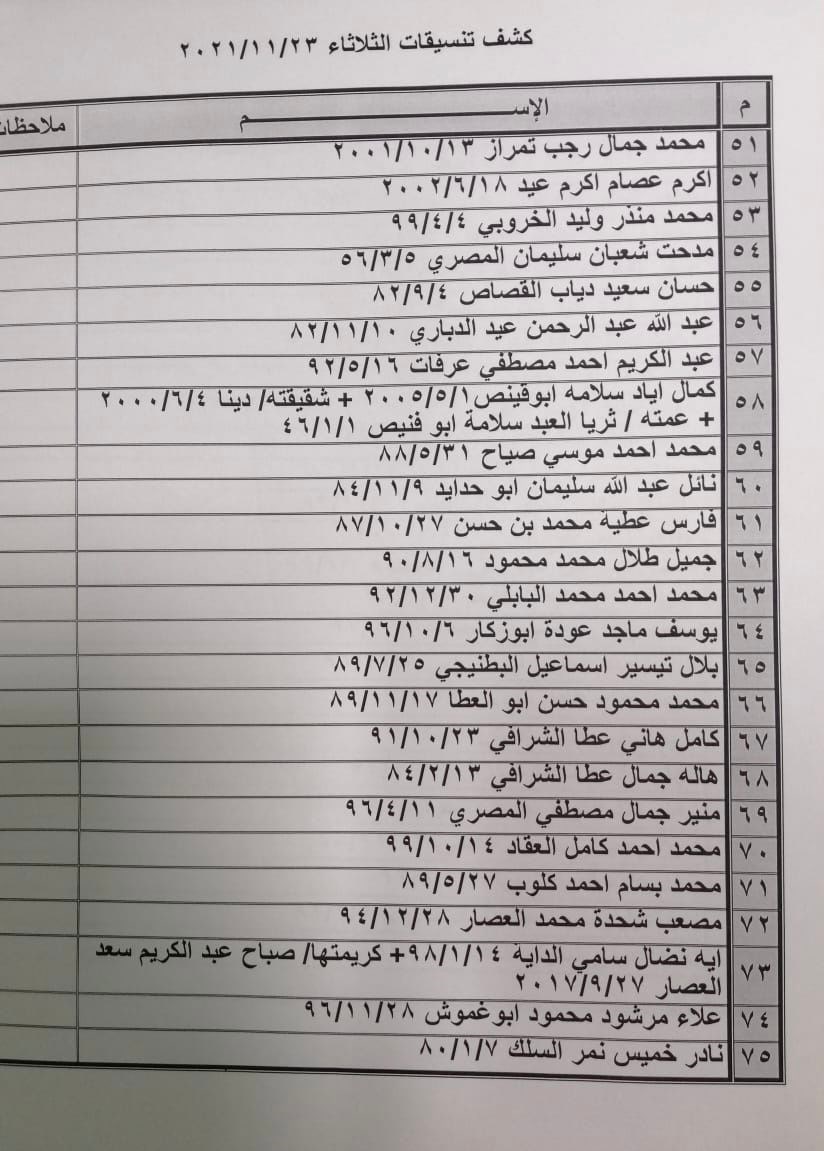 كشف تنسيقات الثلاثاء ٢٠٢١/١١/٢٣
م الإســـــــــم ملاحظات
٥١ محمد جمال رجب تمراز ٢٠٠١/١٠/١٣
٥٢ اكرم عصام اكرم عيد ٢٠٠٢/٦/١٨
٥٣ محمد منذر وليد الخروبي ٩٩/٤/٤
٥٤ مدحت شعبان سليمان المصري ٥٦/٣/٥
٥٥ حسان سعيد دياب القصاص ٨٢/٩/٤
٥٦ عبد الله عبد الرحمن عيد الدباري ٨٢/١١/١٠
٥٧ عبد الكريم احمد مصطفي عرفات ٩٢/٥/١٦
٥٨ كمال اياد سلامه ابوقينص ٢٠٠٥/٥/١ + شقيقته/ دينا ٢٠٠٠/٦/٤
+ عمته / ثريا العبد سلامة ابو فنيص ٤٦/١/١
٥٩ محمد احمد موسي صياح ٨٨/٥/٣١
٦٠ نائل عبد الله سليمان ابو حدايد ٨٤/١١/٩
٦١ فارس عطية محمد بن حسن ٨٧/١٠/٢٧
٦٢ جميل طلال محمد محمود ٩٠/٨/١٦
٦٣ محمد احمد محمد البابلي ٩٢/١٢/٣٠
٦٤ يوسف ماجد عودة ابوزكار ٩٦/١٠/٦
٦٥ بلال تيسير اسماعيل البطنيجي ٨٩/٧/٢٥
٦٦ محمد محمود حسن ابو العطا ٨٩/١١/١٧
٦٧ كامل هاني عطا الشرافي ٩١/١٠/٢٣
٦٨ هاله جمال عطا الشرافي ٨٤/٢/١٣
٦٩ منير جمال مصطفي المصري ٩٦/٤/١١
٧٠ محمد احمد كامل العقاد ٩٩/١٠/١٤
٧١ محمد بسام احمد كلوب ٨٩/٥/٢٧
٧٢ مصعب شحدة محمد العصار ٩٤/١٢/٢٨
٧٣ ايه نضال سامي الداية ٩٨/١/١٤+ كريمتها/ صباح عبد الكريم سعد
العصار ٢٠١٧/٩/٢٧
٧٤ علاء مرشود محمود ابوغموش ٩٦/١١/٢٨
٧٥ نادر خميس نمر السلك ٨٠/١/٧